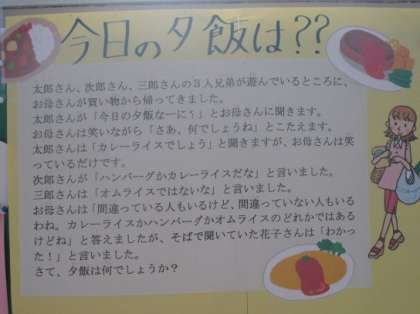 今日の夕飯は??
太郎さん、次郎さん、三郎さんの3人兄弟が遊んでいるところに、
お母さんが買い物から帰ってきました。
太郎さんが「今日の夕飯なーに~」とお母さんに聞きます。
お母さんは笑いながら「さあ、何でしょうね」とこたえます。
太郎さんは「カレーライスでしょう」と聞きますが、お母さんは笑
っているだけです。
次郎さんが「ハンバーグかカレーライスだな」と言いました。
三郎さんは「オムライスではないな」と言いました。
お母さんは「間違っている人もいるけど、間違っていない人もいる
わね。カレーライスかハンバーグかオムライスのどれかではある
けどね」と答えましたが、そばで聞いていた花子さんは「わかっ
た!」と言いました。
さて、夕飯は何でしょうか?